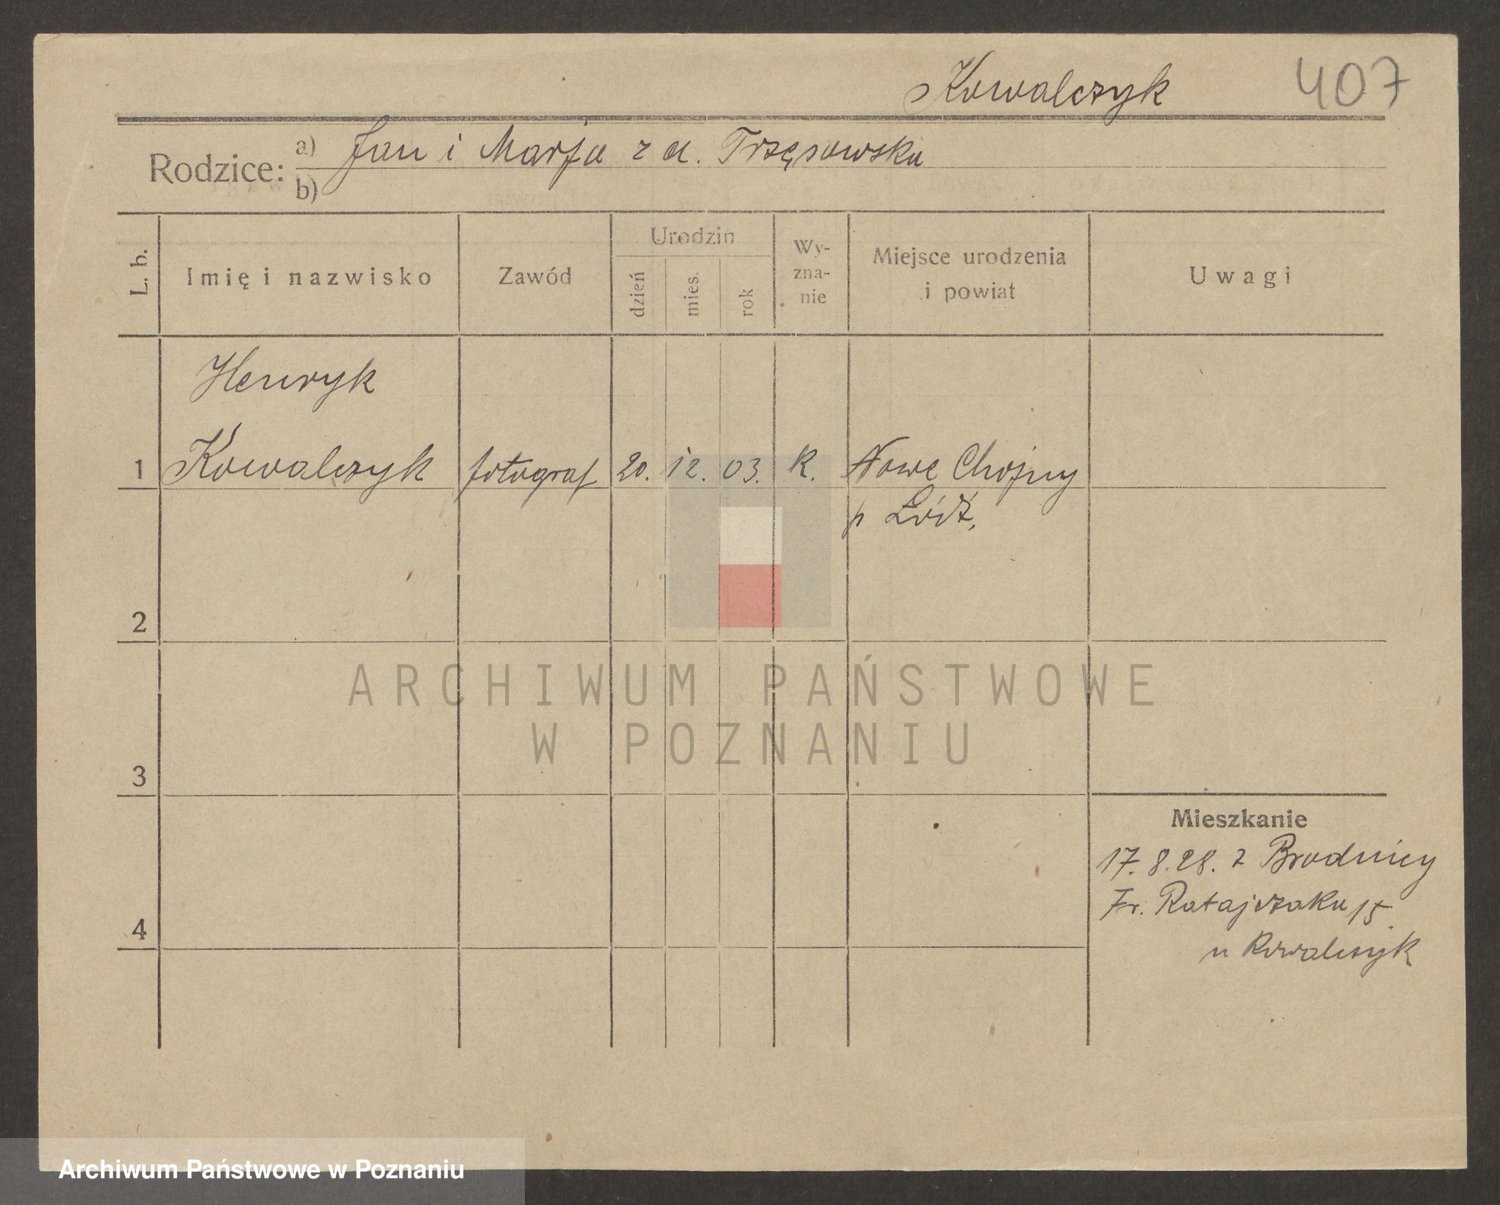 Kowalczyk 407
Rodzice: a) Jan i Marja z d. Trzęsowska
b)
L. b. Imię i nazwisko Zawód Urodzin dzień mies. rok Wyznanie Miejsce urodzenia i powiat Uwagi
Henryk
1 Kowalczyk fotograf 20. 12. 03. K. Nowe Chojny
p Łódź.
2
ARCHIWUM PAŃSTWOWE
W POZNANIU
3
Mieszkanie
17.8.28. z Brodnicy
Fr. Ratajczaka 15
4
u Kowalczyk
Archiwum Państwowe w Poznaniu